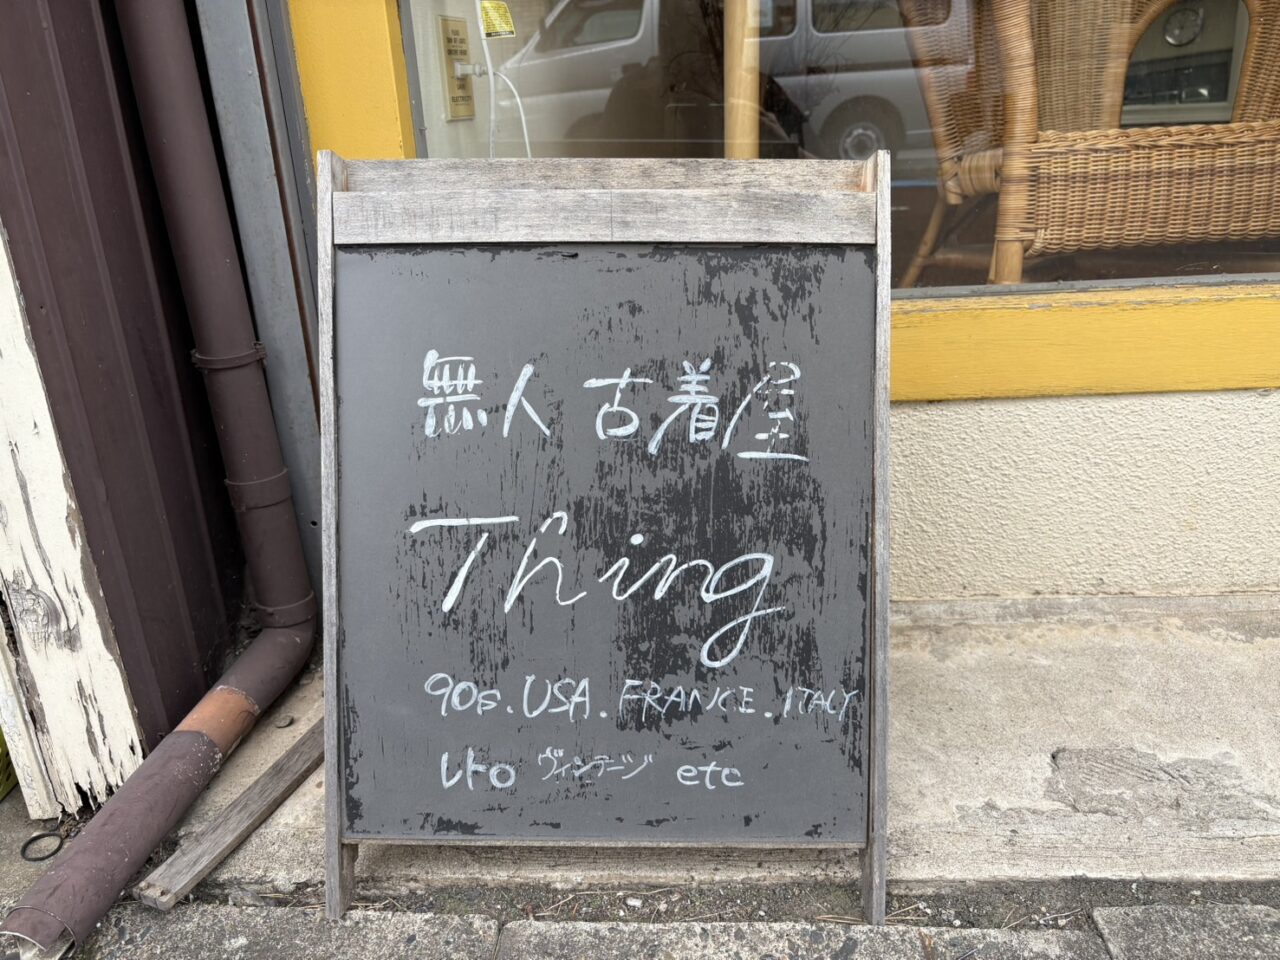 無人古着屋
Thing
90s.USA.FRANCE.ITALY
レトロ ヴィンテージ etc